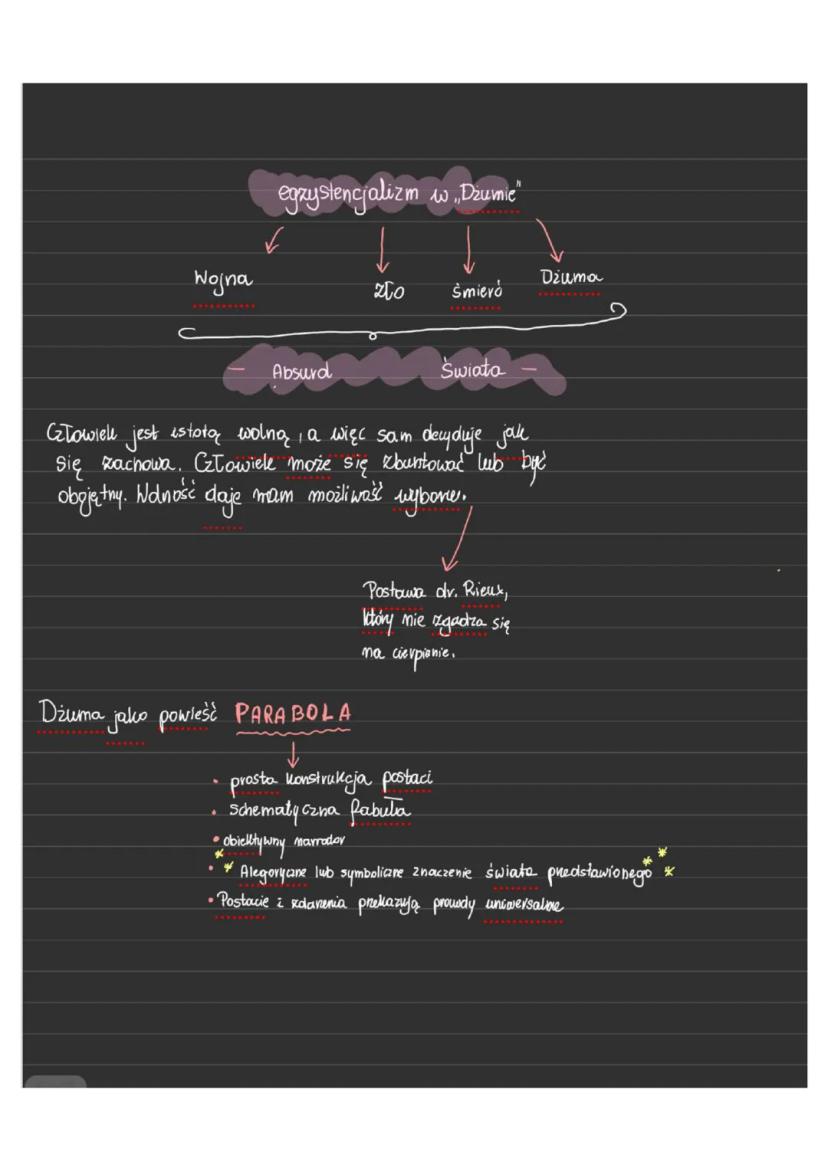 egzystencjalizm w „Dżumie"
Wojna zło śmierć Dżuma
- Absurd Świata -
Człowiek jest istotą wolną, a więc sam decyduje jak
się zachowa. Człowiek może się zbuntować lub być
obojętny. Wolność daje nam możliwość wyboru.
Postawa dr. Rieux,
który nie zgadza się
na cierpienie.
Dżuma jako powieść PARABOLA
• prosta konstrukcja postaci
• schematyczna fabuła
• obiektywny narrator
• * Alegoryczne lub symboliczne znaczenie świata przedstawionego *
• Postacie i zdarzenia przekazują prawdy uniwersalne